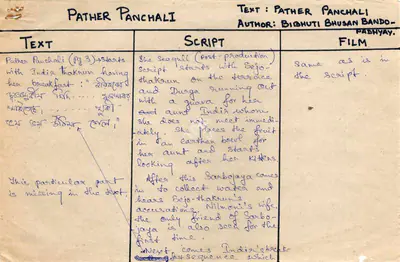 PATHER PANCHALI
TEXT: PATHER PANCHALI
AUTHOR: BIBHUTI BHUSAN BANDO-
PADHYAY.
TEXT
SCRIPT
FILM
Pather Panchali (Pg 3) starts
with Indira thakrun having
her breakfast:
This particular part
is missing in the
The Seagull (Post-production)
Script starts with Sejo-
thakrun on the terrace
and Durga running out
with a guava for her
aunt Indir whom
she does not meet immedi-
ately. She places the fruit
in an earthen bowl for
her aunt and starts
looking after her kittens
After this Sarbojaya comes
in to collect water and
hears Sejo-thakrun's
accusations. Nilmoni's wife,
the only friend of Sarbo-
jaya is also seen for the
first time.
Next, comes Indir
sequence which
Same as is in
the script